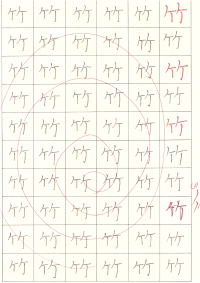 竹竹竹竹竹竹
竹竹竹竹竹竹
竹竹竹竹竹竹
竹竹竹竹竹竹
竹竹竹竹竹竹
竹竹竹竹竹竹
竹竹竹竹竹竹
竹竹竹竹竹竹
竹竹竹竹竹竹
竹竹竹竹竹竹